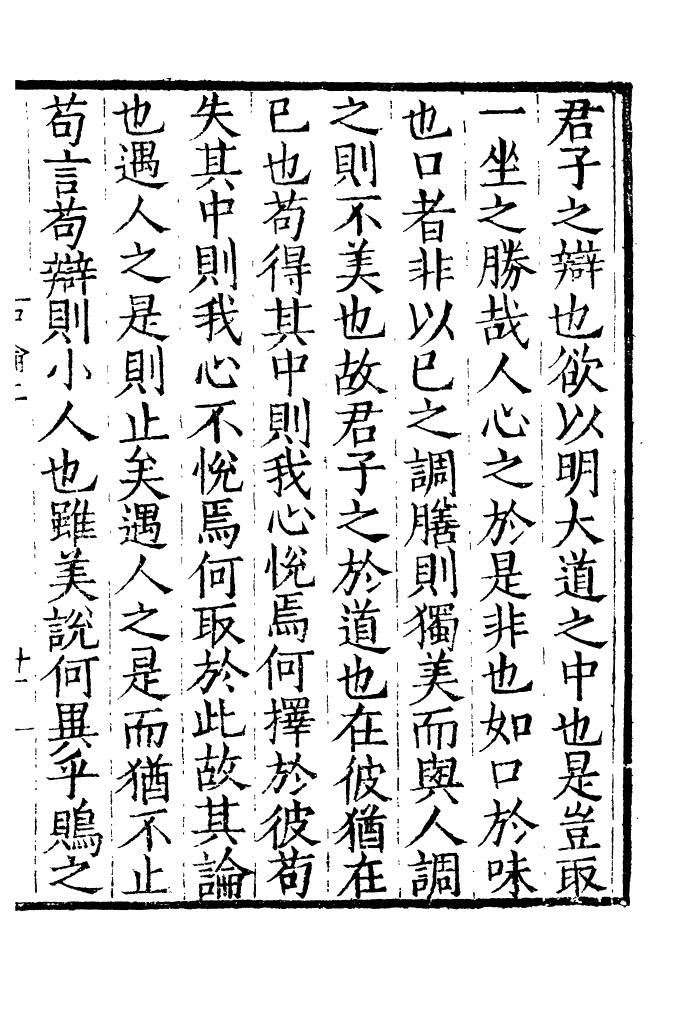 君子之辯也欲以明大道之中也是豈取
一坐之勝哉人心之於是非也如口於味
也口者非以已之調膳則獨美而與人調
之則不美也故君子之於道也在彼猶在
已也苟得其中則我心悅焉何擇於彼苟
失其中則我心不悅焉何取於此故其論
也遇人之是則止矣遇人之是而猶不止
苟言苟辯則小人也雖美說何異乎鵙之